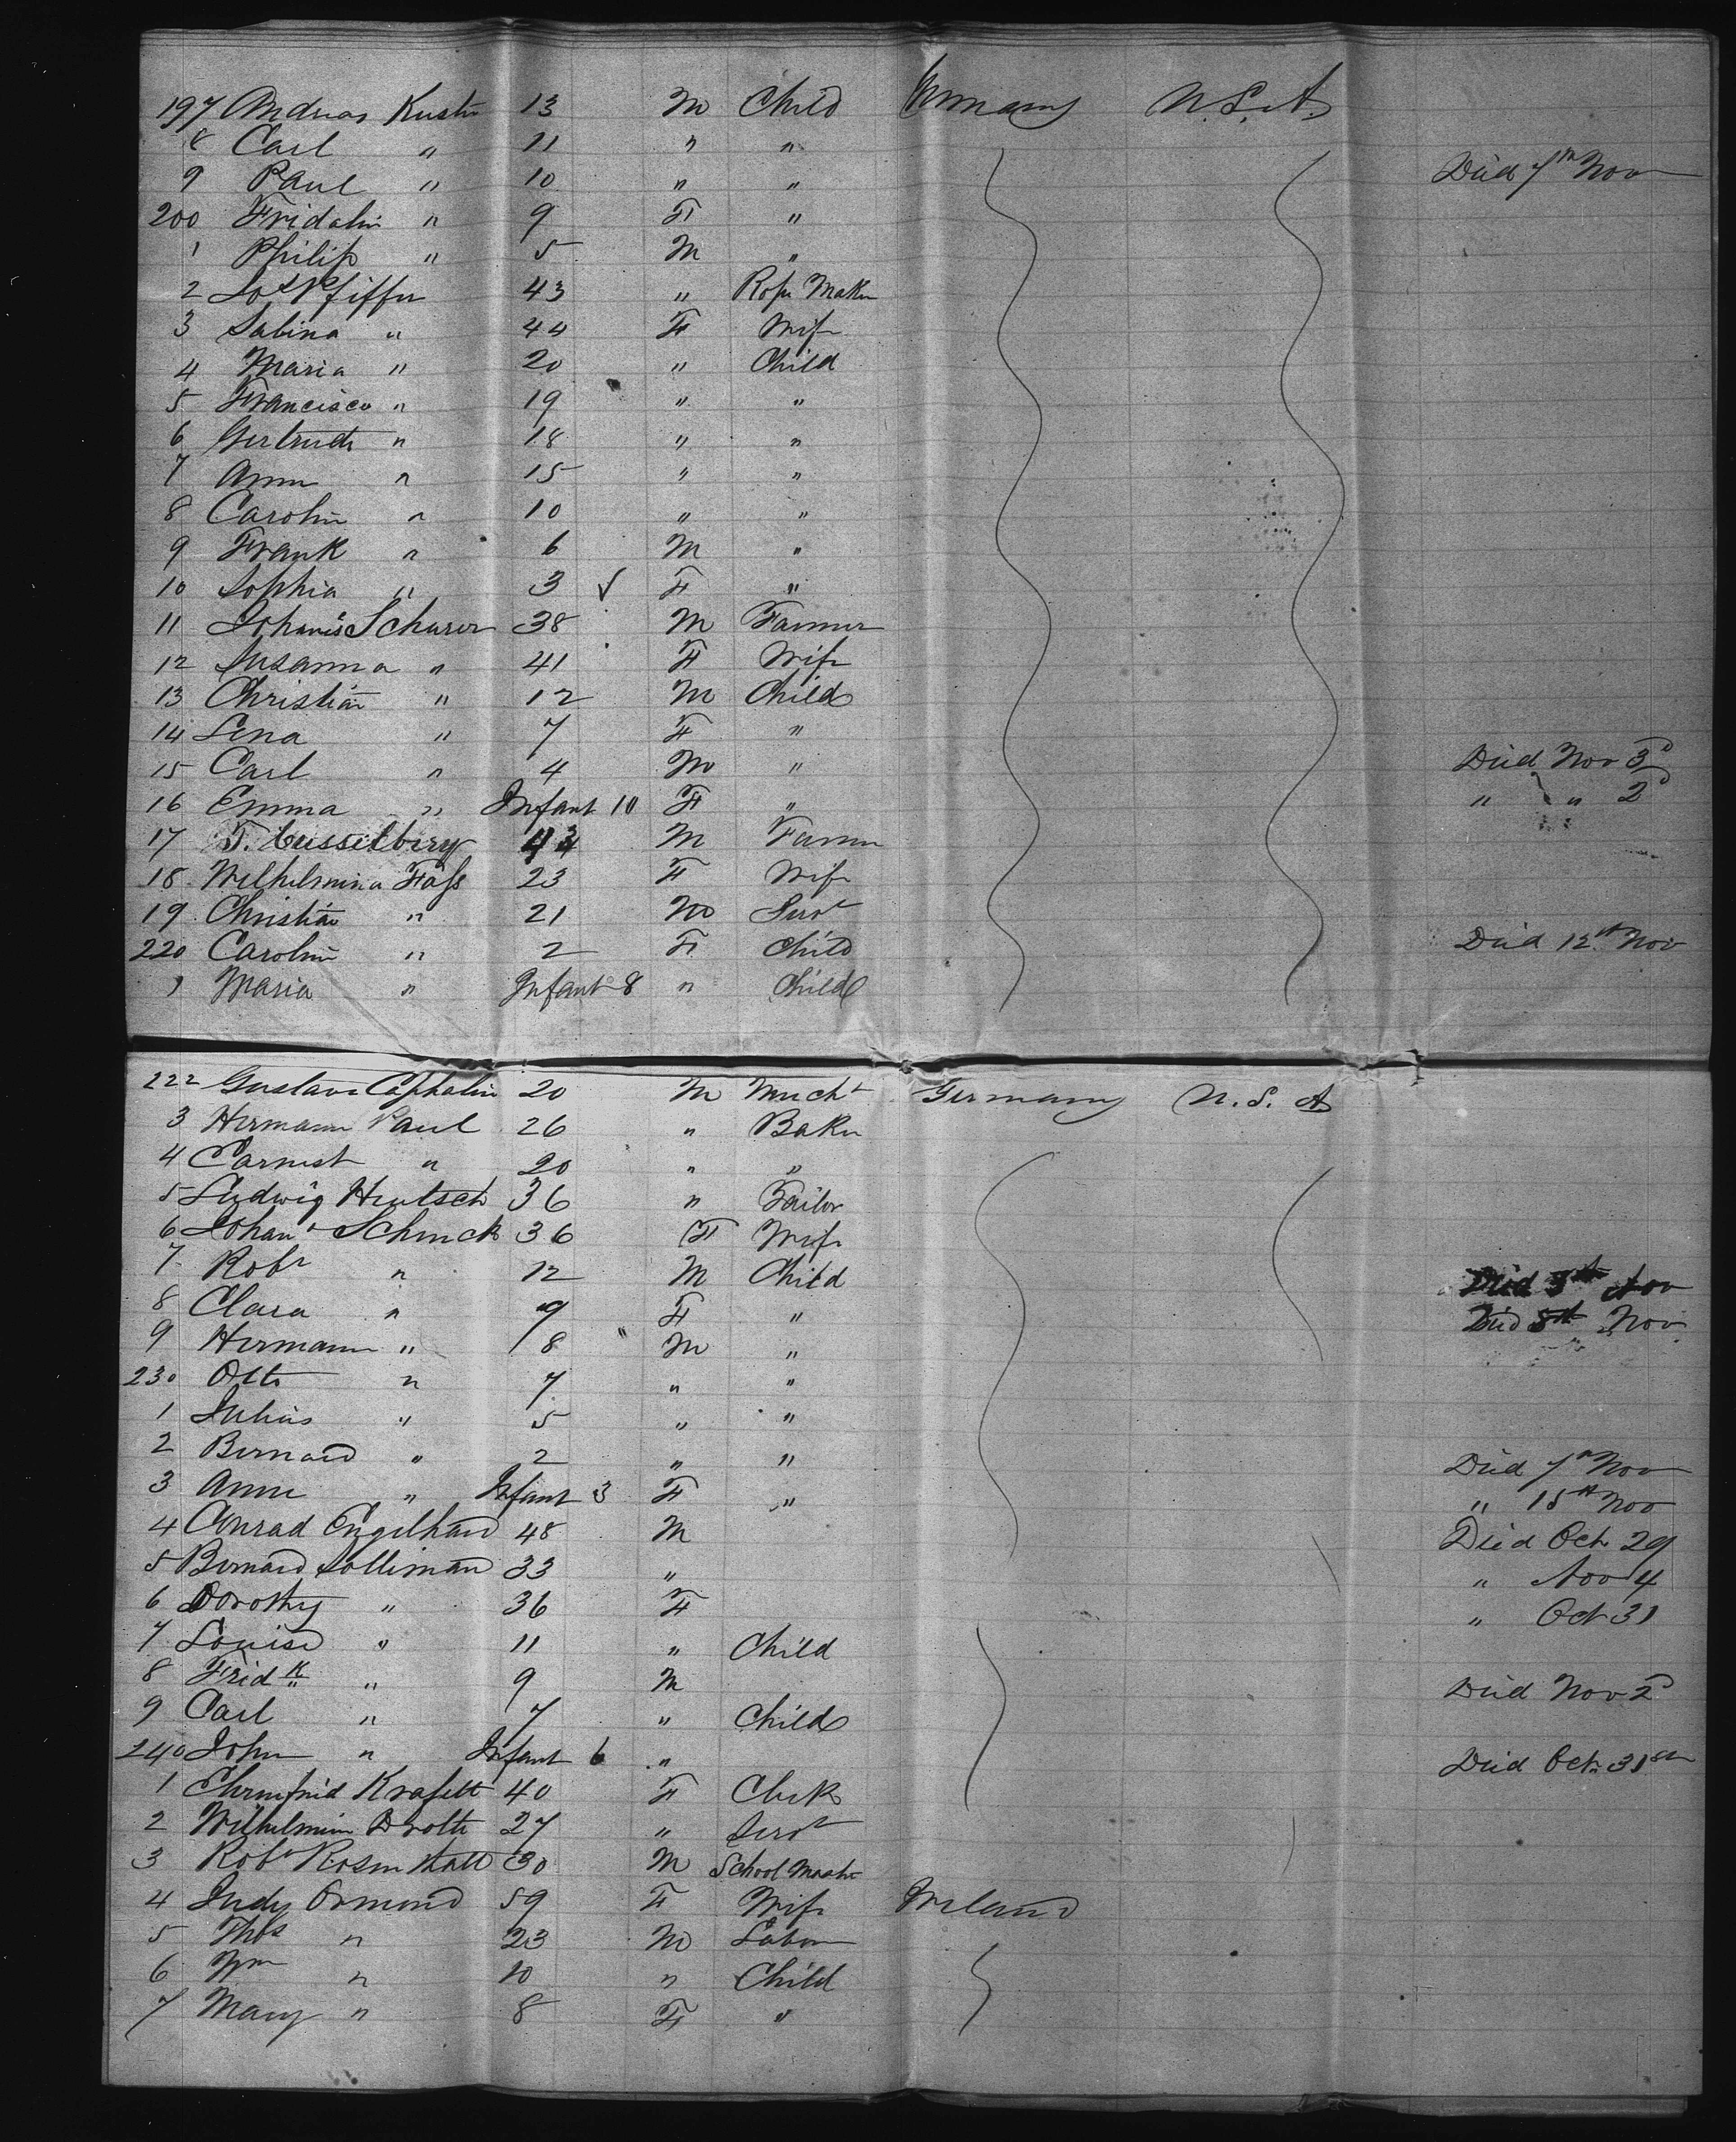 197 Andreas Kuster 13 M Child Germany U.S.A.
8 Carl " 11 " "
9 Paul " 10 " " Died 7th Nov
200 Fridolin " 9 F "
1 Philip " 5 M "
2 Jos Pfiffer 43 " Rope Maker
3 Sabina " 44 F Wife
4 Maria " 20 " Child
5 Francisca " 19 " "
6 Gertrude " 18 " "
7 Anna " 15 " "
8 Carolin " 10 " "
9 Frank " 6 M "
10 Sophia " 3 F "
11 Johanis Schurer 38 M Farmer
12 Susanna " 41 F Wife
13 Christian " 12 M Child
14 Lena " 7 F "
15 Carl " 4 M " Died Nov 3d
16 Emma " Infant 10 F " " " 2d
17 F. 43 M Farmer
18 Wilhelmina Fass 23 F Wife
19 Christian " 21 M Servt
220 Carolin " 2 F Child Died 12th Nov
1 Maria " Infant 8 " Child
222 Gustave 20 M Mercht Germany U.S.A
3 Hermann Paul 26 " Baker
4 Earnest " 20 " "
5 Ludwig Hentsch 36 " Tailor
6 Johan Schenck 36 F Wife
7 Robt " 12 M Child Died 5th Nov
8 Clara " 9 F " Died 8th Nov
9 Hermann " 8 M "
230 Otto " 7 " "
1 Julius " 5 " "
2 Bernard " 2 " " Died 7th Nov
3 Anne " Infant 3 F " " 15th Nov
4 Conrad Engelhard 48 M Died Oct 29
5 Bernard Solliman 33 " " Nov 4
6 Dorothy " 36 F " Oct 31
7 Louise " 11 " Child
8 Fridk " 9 M Died Nov 2d
9 Carl " 7 " Child
240 John " Infant 6 " Died Oct 31st
1 40 F Clerk
2 Wilhelmine Drolte 27 " Servt
3 Robt 30 M School Master
4 Judy Ormond 59 F Wife Ireland
5 Thos " 23 M Labor
6 Wm " 10 " Child
7 Mary " 8 F "